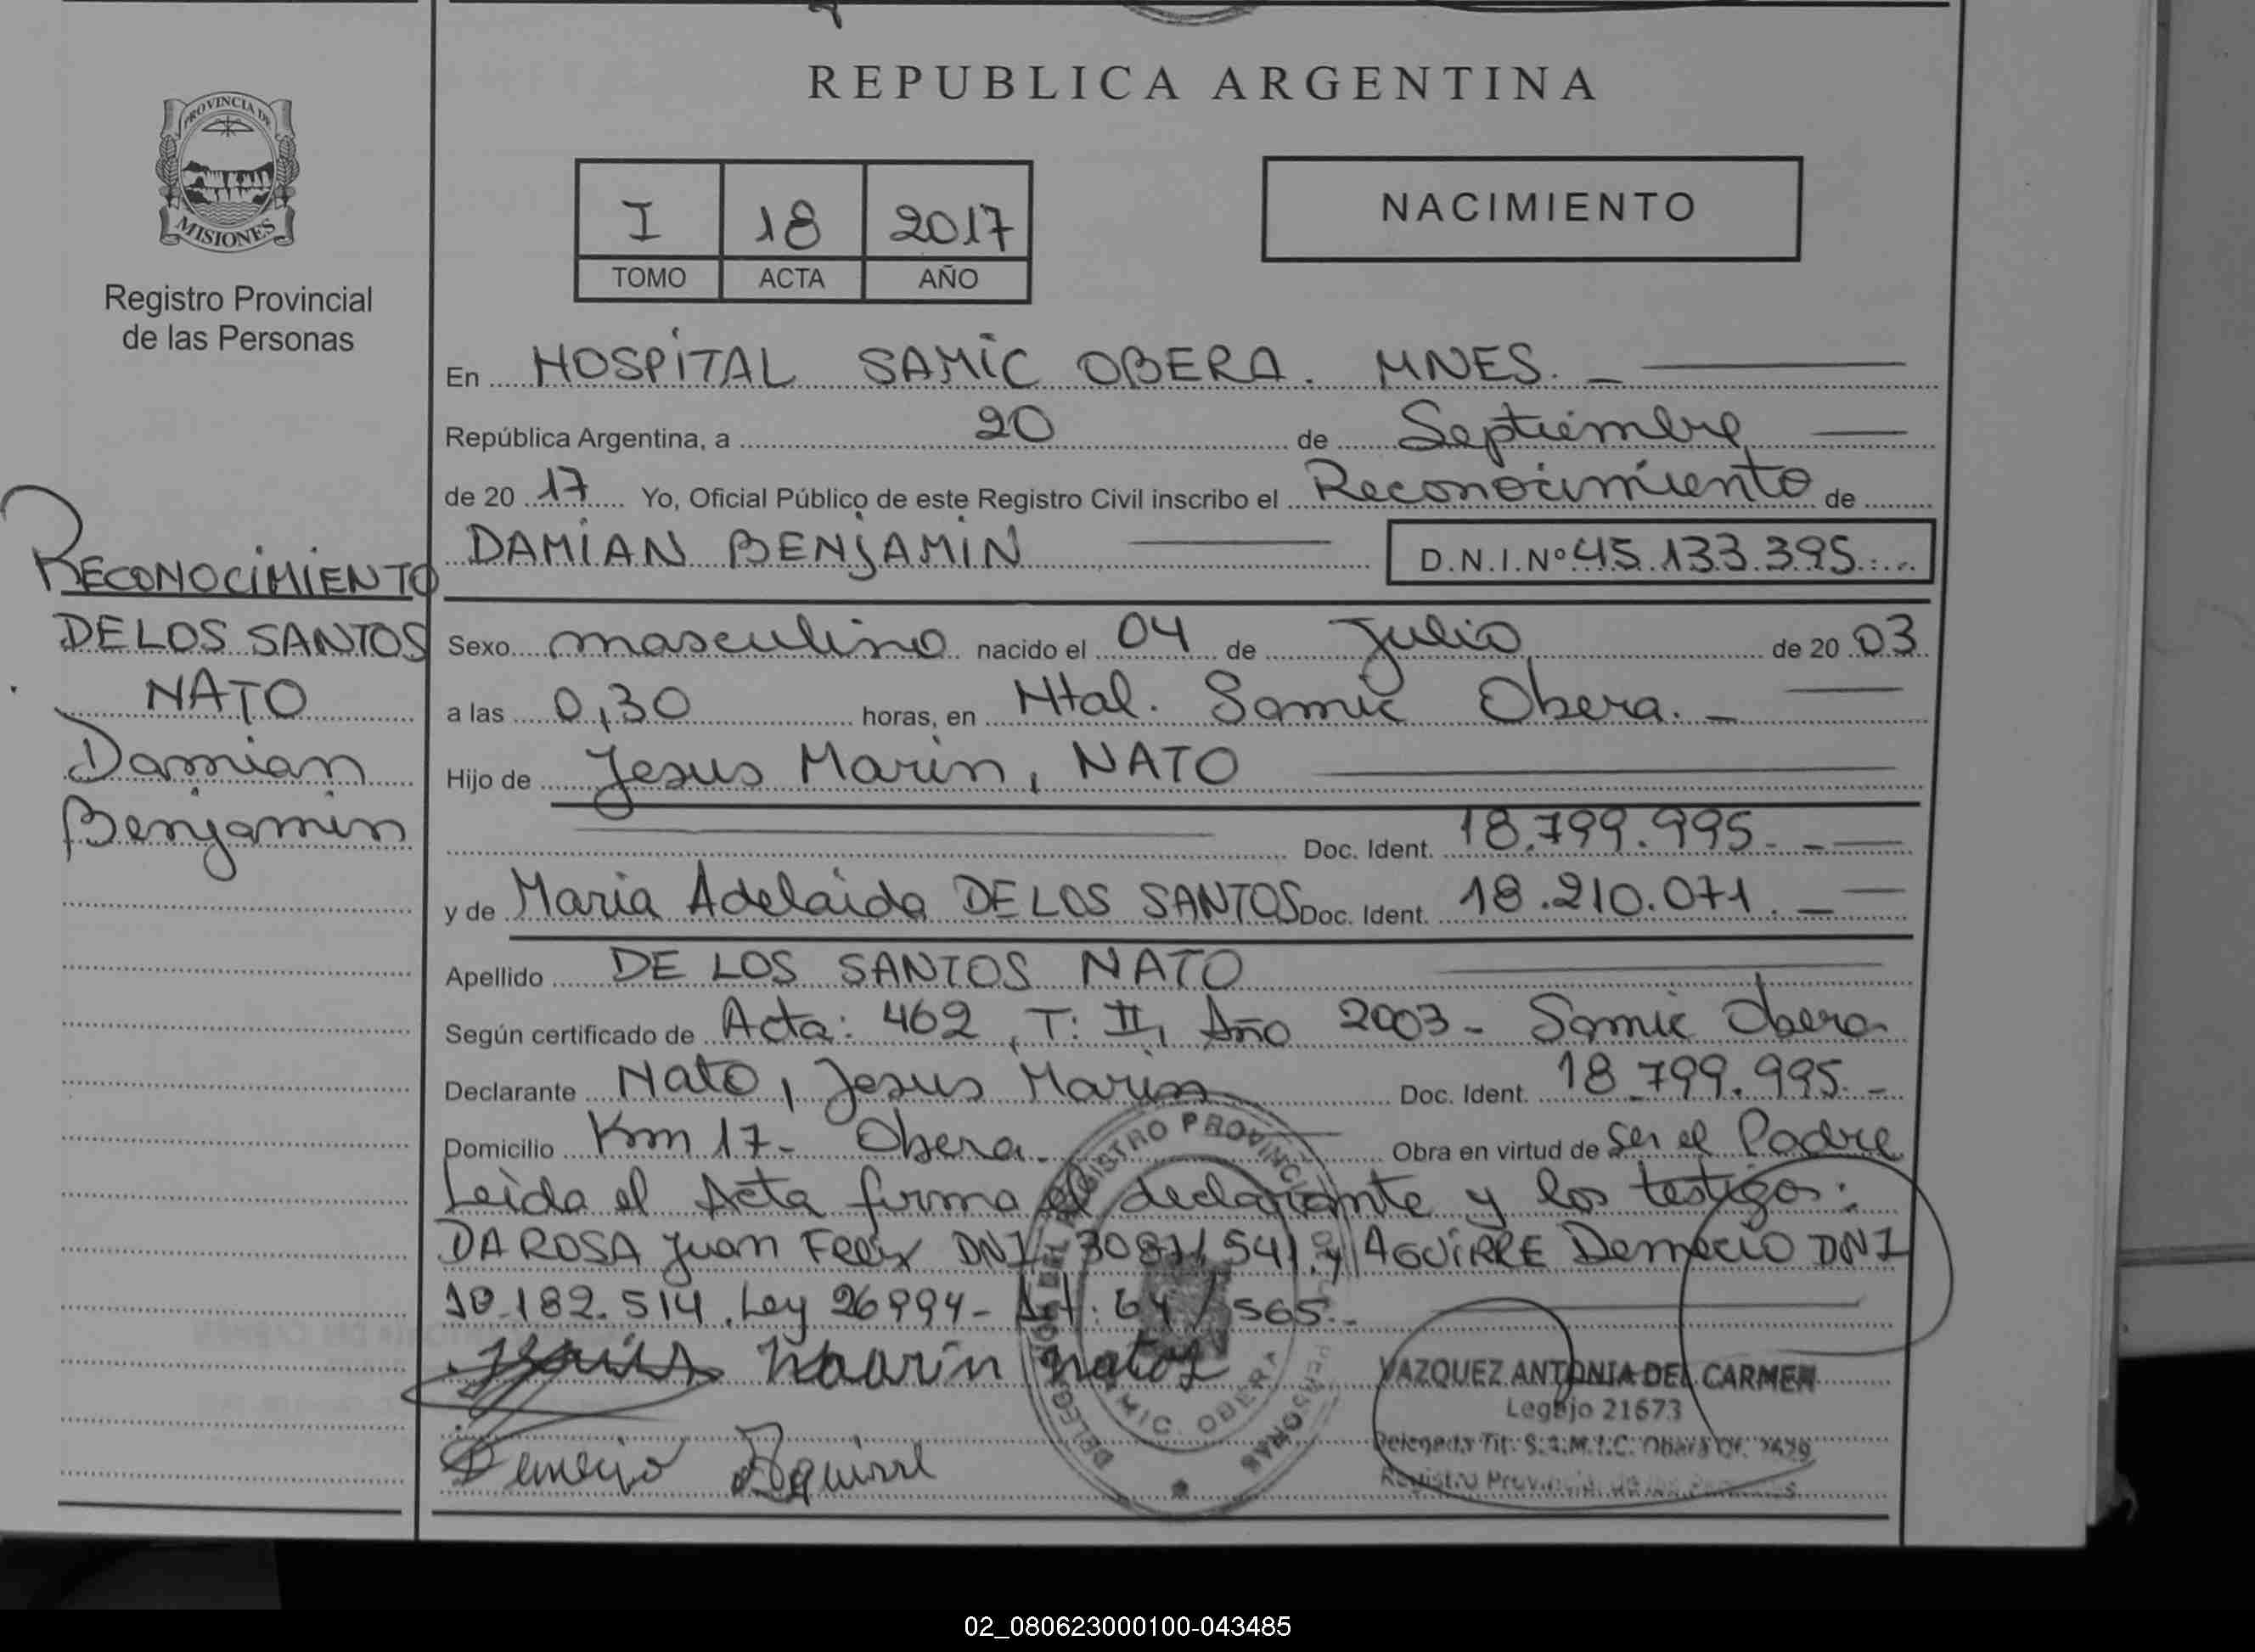 REPUBLICA ARGENTINA
PROVINCIA DE
MISIONES
Registro Provincial
de las Personas
I 18 2017
TOMO ACTA AÑO
NACIMIENTO
En HOSPITAL SAMIC OBERA. MNES.
República Argentina, a 20 de Septiembre
de 20 17 Yo, Oficial Público de este Registro Civil inscribo el Reconocimiento de
DAMIAN BENJAMIN D.N.I.Nº 45.133.395
RECONOCIMIENTO
DE LOS SANTOS
NATO
Damian
Benjamin
Sexo masculino nacido el 04 de Julio de 20 03
a las 0,30 horas, en Htal. Samic Obera.
Hijo de Jesus Marin, NATO
Doc. Ident. 18.799.995.
y de Maria Adelaida DE LOS SANTOS Doc. Ident. 18.210.071.
Apellido DE LOS SANTOS NATO
Según certificado de Acta: 462, T: II, Año 2003 - Samic Obera
Declarante Nato, Jesus Marin Doc. Ident. 18.799.995.-
Domicilio Km 17- Obera. Obra en virtud de Ser el Padre
Leida el Acta firma el declarante y los testigos:
DA ROSA Juan Felix DNI y AGUIRRE Demecio DNI
10.182.514. Ley 26994- Art: 64/565.-
Jesus Maarin natos
VAZQUEZ ANTONIA DEL CARMEN
Legajo 21673
Delegada Tit. S.A.M.I.C. Oberá
Registro
Demecio Aguirre
REGISTRO PROVINCIAL
PERSONAS
OBERA
02_080623000100-043485